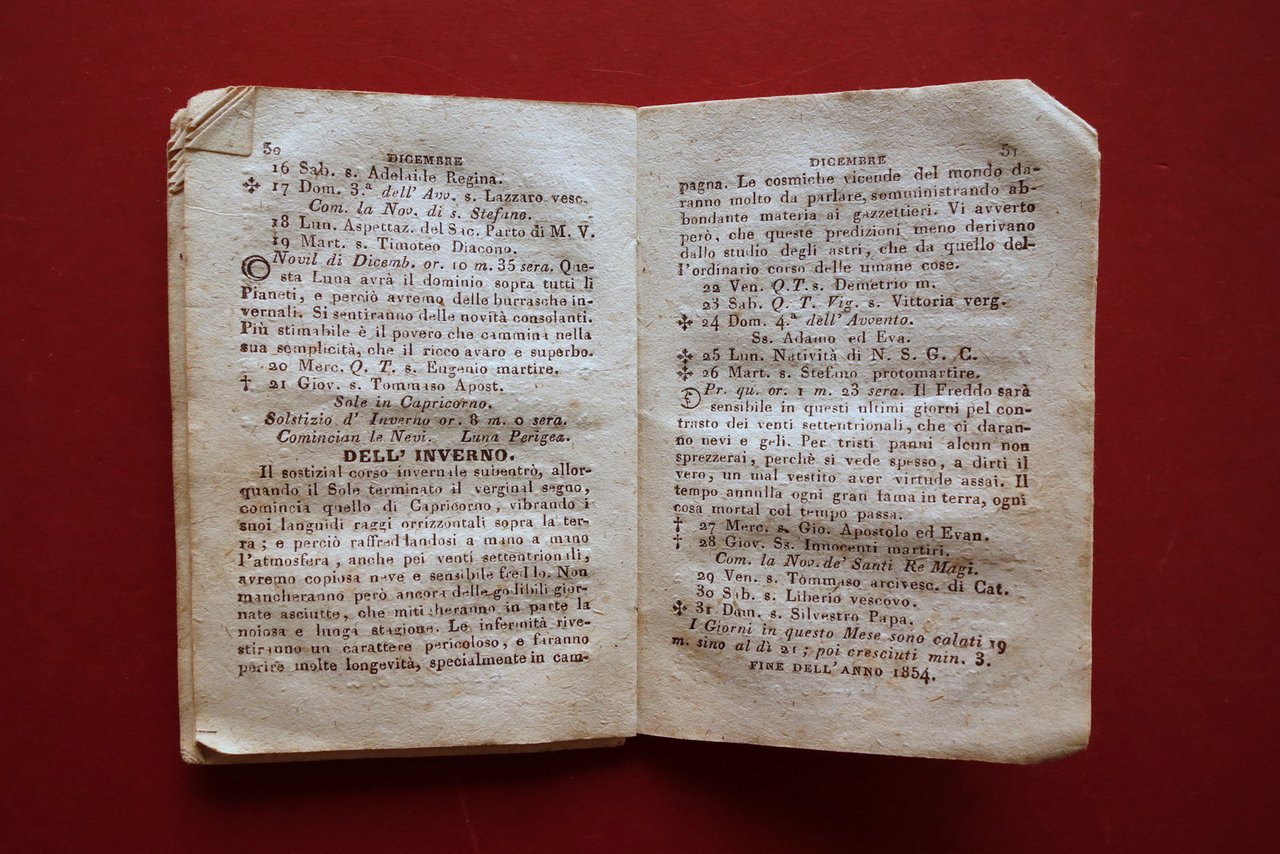 50
DICEMBRE
16 Sab. s. Adelaide Regina.
✠ 17 Dom. 3.ª dell' Avv. s. Lazzaro vesc.
Com. la Nov. di s. Stefano.
18 Lun. Aspettaz. del Sac. Parto di M. V.
19 Mart. s. Timoteo Diacono.
Novil di Dicemb. or. 10 m. 35 sera. Que-
sta Luna avrà il dominio sopra tutti li
Pianeti, e perciò avremo delle burrasche in-
vernali. Si sentiranno delle novità consolanti.
Più stimabile è il povero che cammina nella
sua semplicità, che il ricco avaro e superbo.
20 Merc. Q. T. s. Eugenio martire.
† 21 Giov. s. Tommaso Apost.
Sole in Capricorno.
Solstizio d' Inverno or. 8 m. 0 sera.
Comincian le Nevi. Luna Perigea.
DELL' INVERNO.
Il sostizial corso invernale subentrò, allor-
quando il Sole terminato il verginal segno,
comincia quello di Capricorno, vibrando i
suoi languidi raggi orrizzontali sopra la ter-
ra; e perciò raffreddandosi a mano a mano
l'atmosfera, anche pei venti settentrionali,
avremo copiosa neve e sensibile freddo. Non
mancheranno però ancora delle godibili gior-
nate asciutte, che mitigheranno in parte la
noiosa e lunga stagione. Le infermità rive-
stiranno un carattere pericoloso, e faranno
perire molte longevità, specialmente in cam-
DICEMBRE
51
pagna. Le cosmiche vicende del mondo da-
ranno molto da parlare, somministrando ab-
bondante materia ai gazzettieri. Vi avverto
però, che queste predizioni meno derivano
dallo studio degli astri, che da quello del-
l'ordinario corso delle umane cose.
22 Ven. Q. T. s. Demetrio m.
23 Sab. Q. T. Vig. s. Vittoria verg.
✠ 24 Dom. 4.ª dell' Avvento.
Ss. Adamo ed Eva.
✠ 25 Lun. Natività di N. S. G. C.
✠ 26 Mart. s. Stefano protomartire.
Pr. qu. or. 1 m. 23 sera. Il Freddo sarà
sensibile in questi ultimi giorni pel con-
trasto dei venti settentrionali, che ci daran-
no nevi e geli. Per tristi panni alcun non
sprezzerai, perchè si vede spesso, a dirti il
vero, un mal vestito aver virtude assai. Il
tempo annulla ogni gran fama in terra, ogni
cosa mortal col tempo passa.
† 27 Merc. s. Gio. Apostolo ed Evan.
† 28 Giov. Ss. Innocenti martiri.
Com. la Nov. de' Santi Re Magi.
29 Ven. s. Tommaso arcivesc. di Cat.
30 Sab. s. Liberio vescovo.
✠ 31 Dom. s. Silvestro Papa.
I Giorni in questo Mese sono calati 19
m. sino al dì 21; poi cresciuti min. 3.
FINE DELL' ANNO 1854.